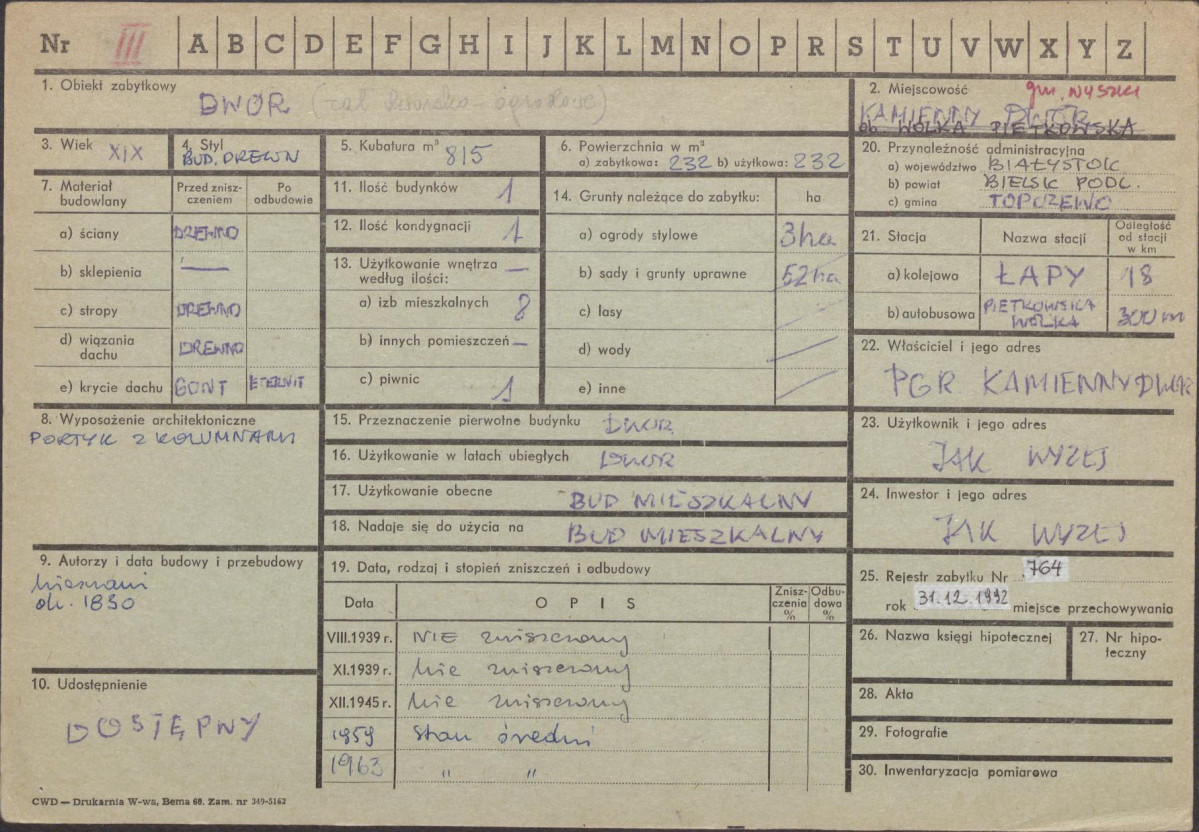 Nr III A B C D E F G H I J K L M N O P R S T U V W X Y Z
1. Obiekt zabytkowy
DWÓR (zał. dworsko-ogrodowe)
2. Miejscowość gm. WYSZKI
KAMIENNY DWÓR
ob. WÓLKA PIETKOWSKA
3. Wiek XIX
4. Styl
BUD. DREWN
5. Kubatura m³ 815
6. Powierzchnia w m²
a) zabytkowa: 232 b) użytkowa: 232
20. Przynależność administracyjna
a) województwo BIAŁYSTOK
b) powiat BIELSK PODL.
c) gmina TOPCZEWO
7. Materiał budowlany
Przed zniszczeniem
Po odbudowie
a) ściany DREWNO
b) sklepienia —
c) stropy DREWNO
d) wiązania dachu DREWNO
e) krycie dachu GONT ETERNIT
11. Ilość budynków 1
12. Ilość kondygnacji 1
13. Użytkowanie wnętrza według ilości: —
a) izb mieszkalnych 8
b) innych pomieszczeń —
c) piwnic 1
14. Grunty należące do zabytku: ha
a) ogrody stylowe 3ha
b) sady i grunty uprawne 52ha
c) lasy —
d) wody —
e) inne —
21. Stacja
Nazwa stacji
Odległość od stacji w km
a) kolejowa ŁAPY 18
b) autobusowa PIETKOWSKA WÓLKA 300 m
22. Właściciel i jego adres
PGR KAMIENNY DWÓR
8. Wyposażenie architektoniczne
PORTYK Z KOLUMNAMI
15. Przeznaczenie pierwotne budynku DWÓR
16. Użytkowanie w latach ubiegłych DWÓR
17. Użytkowanie obecne BUD MIESZKALNY
18. Nadaje się do użycia na BUD MIESZKALNY
23. Użytkownik i jego adres
JAK WYZEJ
24. Inwestor i jego adres
JAK WYZEJ
9. Autorzy i data budowy i przebudowy
nieznani
ok. 1830
19. Data, rodzaj i stopień zniszczeń i odbudowy
Data
OPIS
Zniszczenia %
Odbudowa %
VIII.1939 r. NIE zniszczony
XI.1939 r. nie zniszczony
XII.1945 r. nie zniszczony
1959 stan średni
1963 " "
25. Rejestr zabytku Nr 764
rok 31.12.1992 miejsce przechowywania
26. Nazwa księgi hipotecznej
27. Nr hipoteczny
28. Akta
29. Fotografie
30. Inwentaryzacja pomiarowa
10. Udostępnienie
DOSTĘPNY
CWD — Drukarnia W-wa, Bema 60. Zam. nr 349-5162